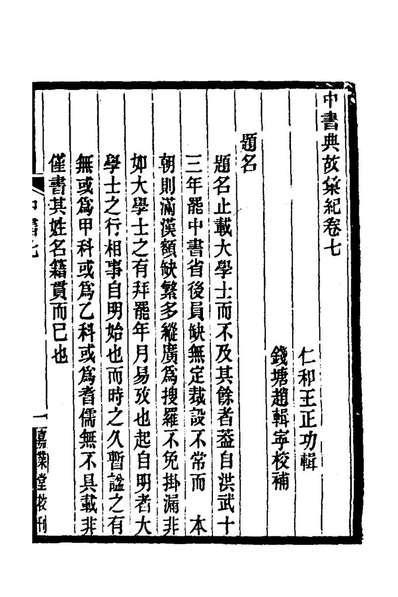 中書典故彙紀卷七
仁和王正功輯
錢塘趙輯寧校補
題名
題名止載大學士而不及其餘者蓋自洪武十
三年罷中書省後員缺無定裁設不常而 本
朝則滿漢額缺繁多縱廣爲搜羅不免掛漏非
如大學士之有拜罷年月易攷也起自明者大
學士之行相事自明始也而時之久暫諡之有
無或爲甲科或爲乙科或爲耆儒無不具載非
僅書其姓名籍貫而已也
中書七
一
嘉業堂校刊